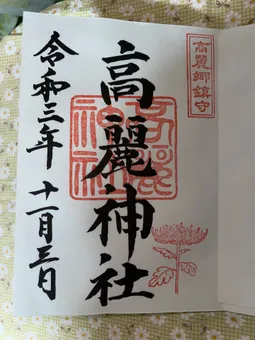 高麗郷鎮守
高麗神社
高麗
神社
令和三年 十一月三日